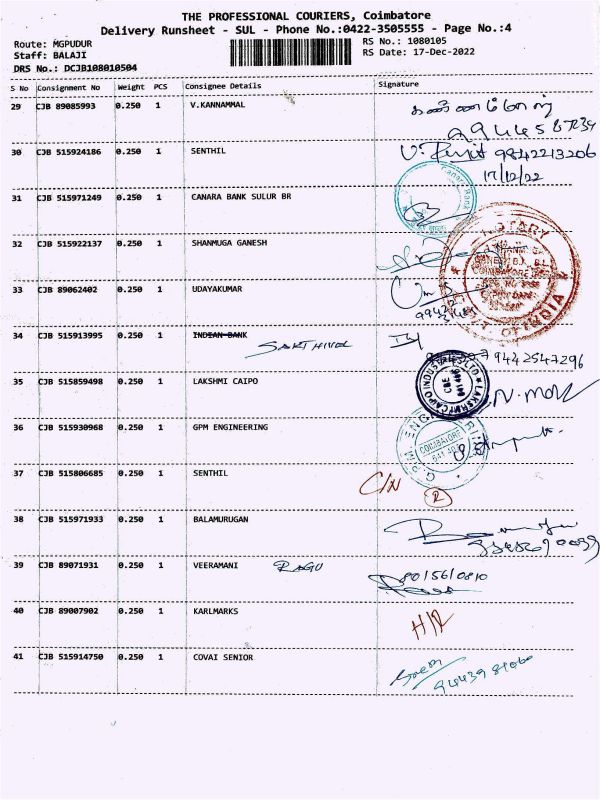 THE PROFESSIONAL COURIERS, Coimbatore
Delivery Runsheet - SUL - Phone No.:0422-3505555 - Page No.:4
Route: MGPUDUR
RS No.: 1080105
Staff: BALAJI
RS Date: 17-Dec-2022
DRS No.: DCJB108010504
S No Consignment No Weight PCS Consignee Details Signature
29 CJB 89085993 0.250 1 V.KANNAMMAL
30 CJB 515924186 0.250 1 SENTHIL 9842213206
17/12/22
31 CJB 515971249 0.250 1 CANARA BANK SULUR BR
32 CJB 515922137 0.250 1 SHANMUGA GANESH
NOTARY
33 CJB 89062402 0.250 1 UDAYAKUMAR
GOVT. OF INDIA
34 CJB 515913995 0.250 1 INDIAN BANK
SAKTHIVEL 9442547296
35 CJB 515859498 0.250 1 LAKSHMI CAIPO
36 CJB 515930968 0.250 1 GPM ENGINEERING
COIMBATORE
37 CJB 515806685 0.250 1 SENTHIL C/N R
38 CJB 515971933 0.250 1 BALAMURUGAN
39 CJB 89071931 0.250 1 VEERAMANI RAGU 8015610810
40 CJB 89007902 0.250 1 KARLMARKS
41 CJB 515914750 0.250 1 COVAI SENIOR